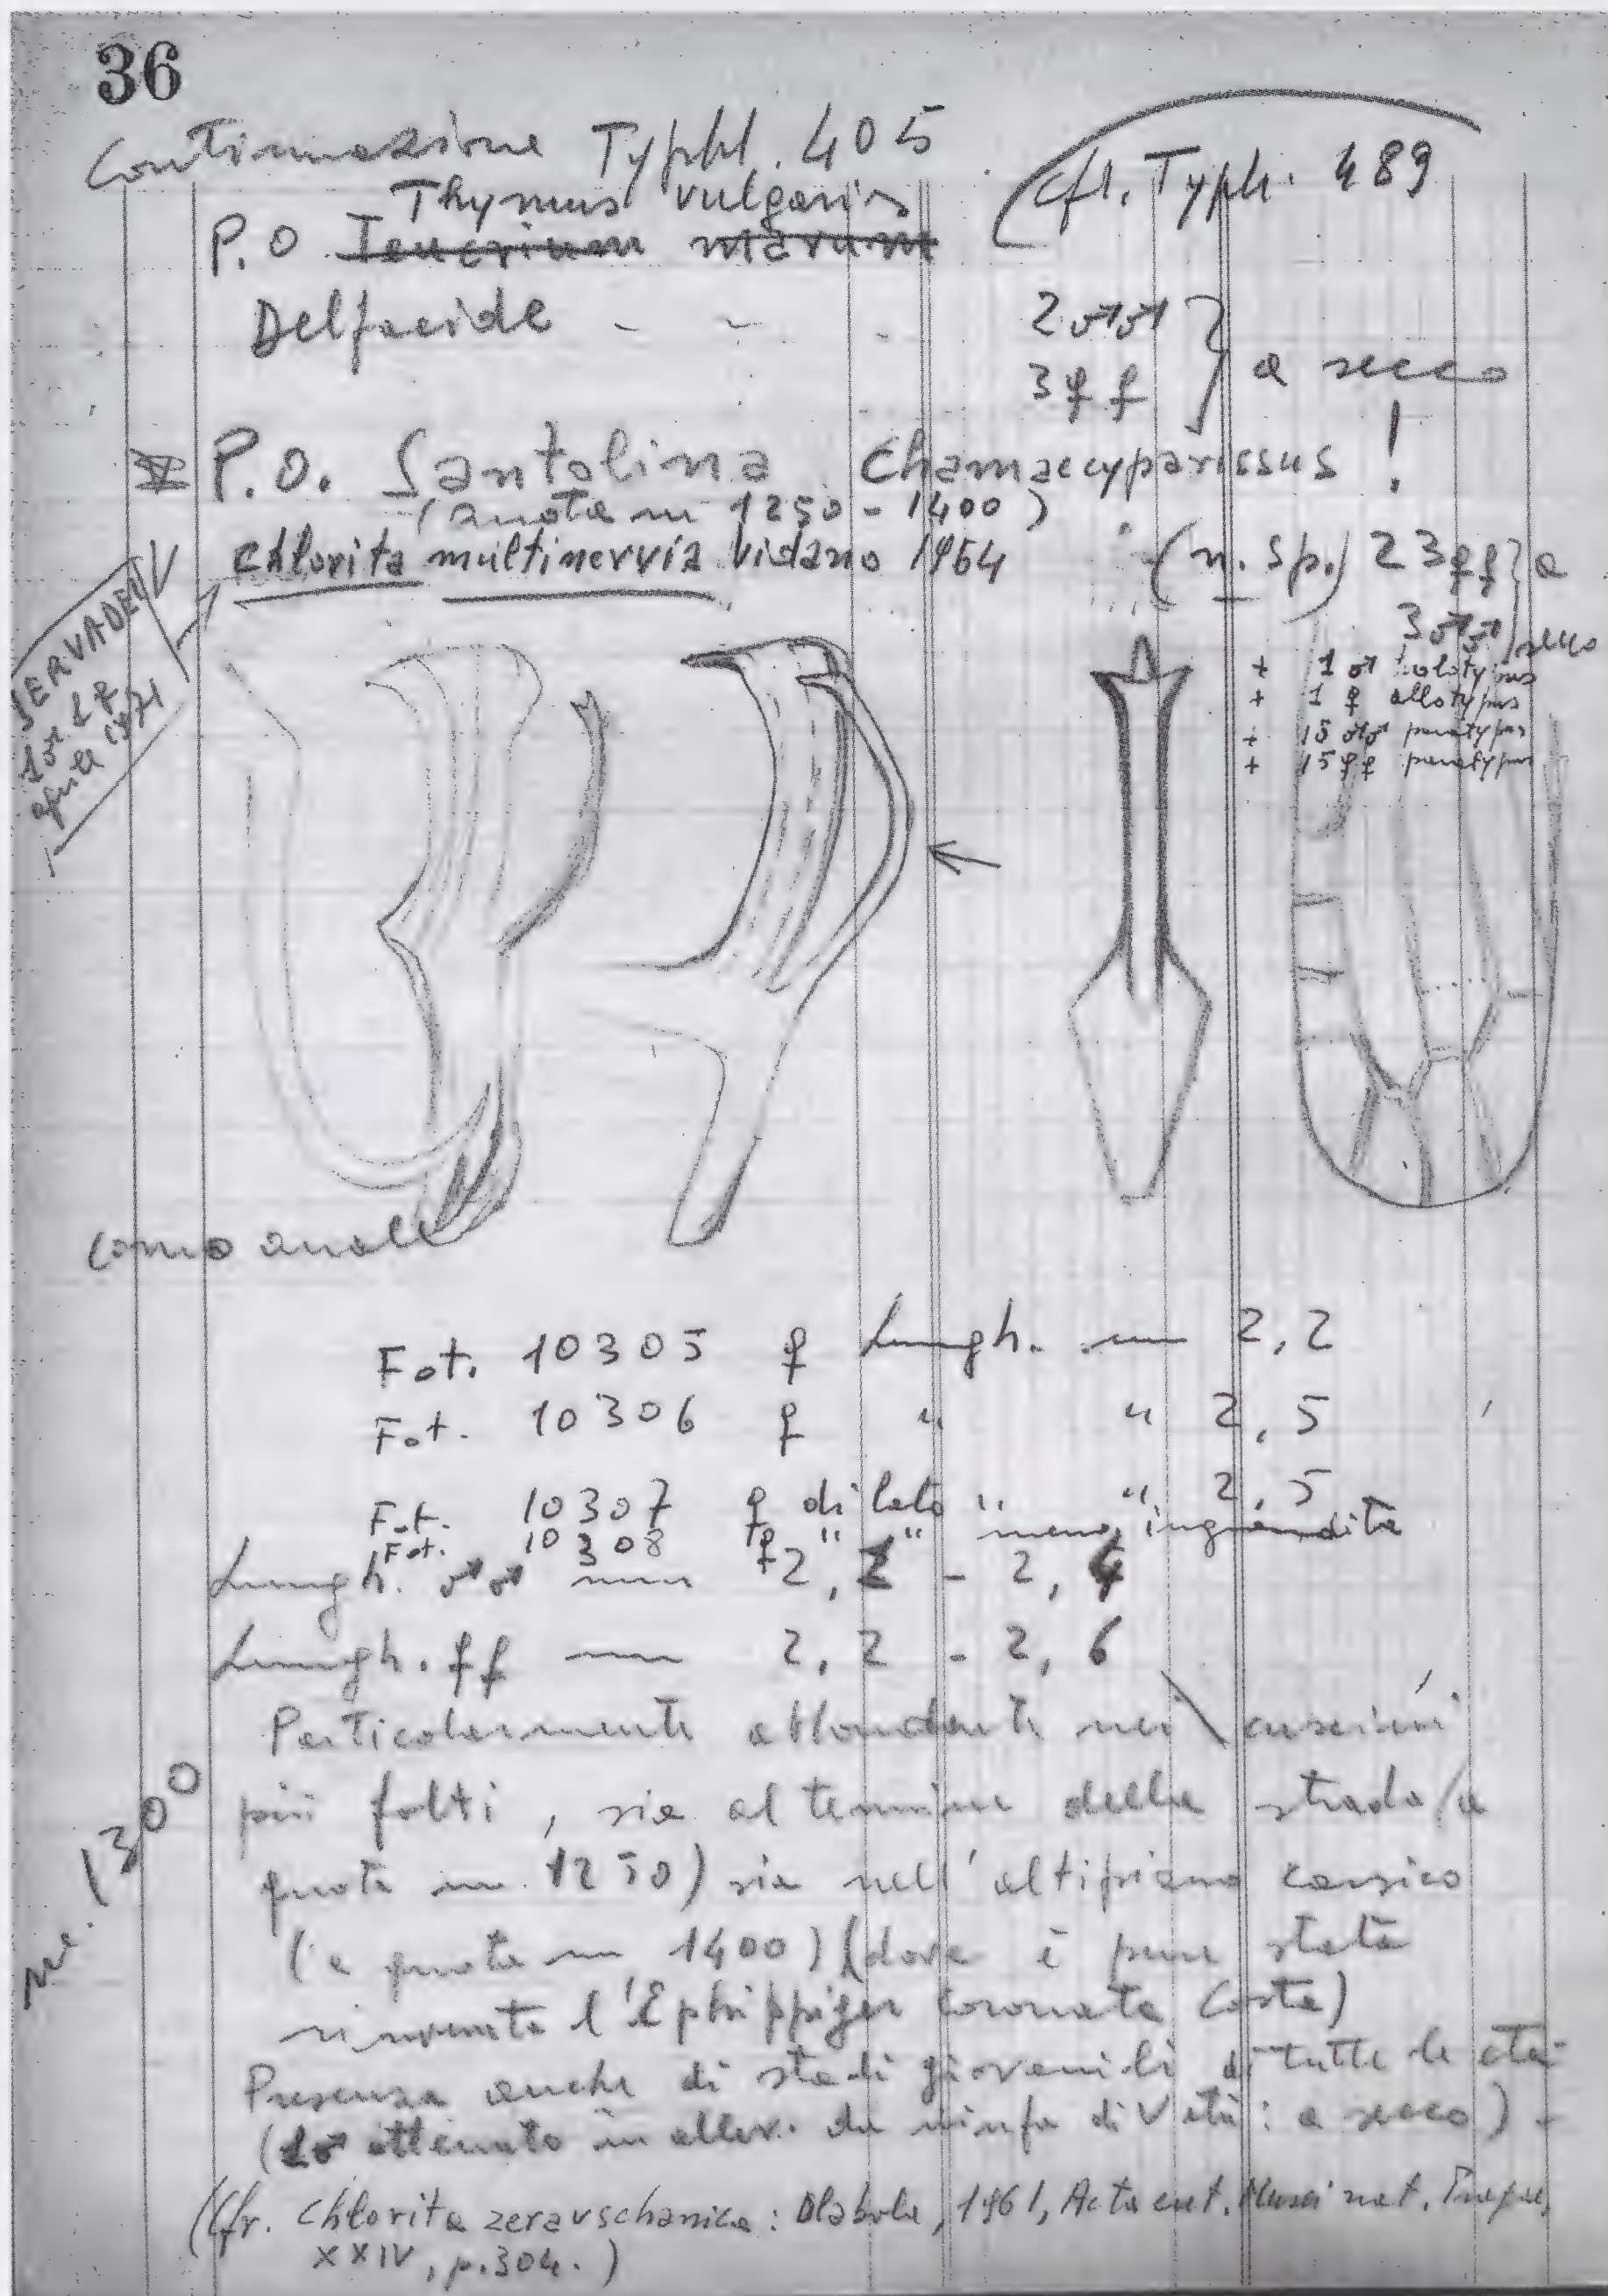 36
Continuazione Typhl. 405
(cfr. Typh. 489
Thymus vulgaris
P.O Teucrium marum
Delfacide - - -
2 ♂♂
3 ♀♀ } a secco
P.O. Santolina Chamaecyparissus !
(quota m 1250 - 1400)
Chlorita multinervia Vidano 1964 (n. sp.) 23 ♀♀ } a
3 ♂♂ } secco
+ 1 ♂ holotypus
+ 1 ♀ allotypus
+ 15 ♂♂ paratypus
+ 15 ♀♀ paratypus
SERVADEI
1♂ 1♀
aprile 1971
cono anale
Fot. 10305 ♀ Lungh. mm 2,2
Fot. 10306 ♀ " " 2,5
Fot. 10307 ♀ di lato " " 2,5
Fot. 10308 ♀ " " meno ingrandita
Lungh. ♂♂ mm 2,2 - 2,4
Lungh. ♀♀ mm 2,2 - 2,6
Particolarmente abbondante nei cuscini
più folti, sia al termine della strada (a
quota m. 1250) sia nell'altipiano carsico
(a quota m 1400) (dove è pure stata
rinvenuta l'Ephippiger coronata Costa)
m. 1300
Presenza anche di stadi giovanili di tutte le età
(1♂ ottenuto in allev. da ninfa di V età: a secco) -
(Cfr. Chlorita zeravschanica: Dlabola, 1961, Acta ent. Musei nat. Pragae,
XXIV, p. 304.)